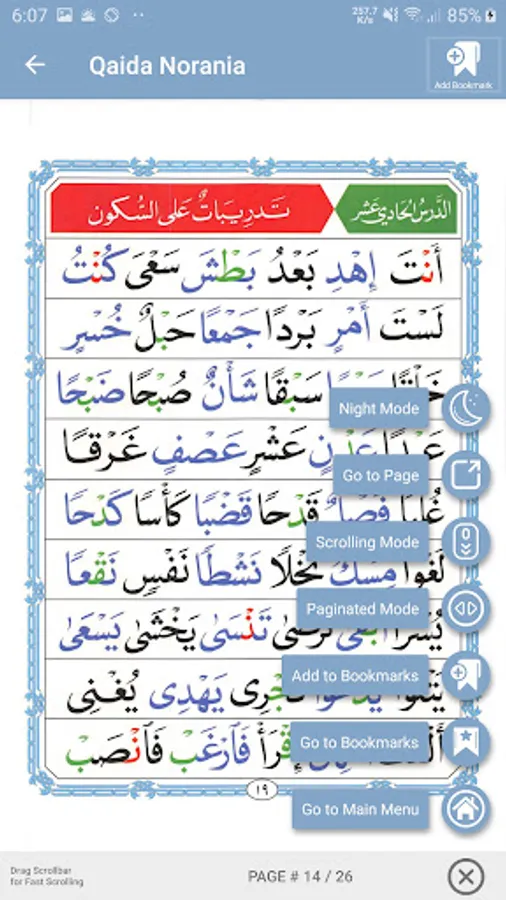 6:07
257.7 K/s
85%
Qaida Norania
Add Bookmark
الدَّرْسُ الحَادِي عَشَر
تَدْرِيبَاتٌ عَلَى السُّكُون
أَنْتَ إِهْدِ بَعْدُ بَطْشَ سَعْىَ كُنْتُ
لَسْتَ أَمْرٍ بَرْدًا جَمْعًا حَبْلٌ خُسْرٍ
سَبْقًا شَأْنٌ صُبْحًا ضَبْحًا
عَدْنٍ عَشْرٍ عَصْفٍ غَرْقًا
فَصْلٌ قَدْحًا قَضْبًا كَأْسًا كَدْحًا
لَغْوًا مِسْكٌ نَخْلًا نَشْطًا نَفْسٍ نَقْعًا
يُسْرًا أَبْقَى تَرْضَىٰ تَنْسَىٰ يَخْشَىٰ يَسْعَىٰ
تَجْرِى يَهْدِى يُغْنِى
إِقْرَأْ فَٱرْغَبْ فَٱنْصَبْ
١٩
Night Mode
Go to Page
Scrolling Mode
Paginated Mode
Add to Bookmarks
Go to Bookmarks
Go to Main Menu
Drag Scrollbar
for Fast Scrolling
PAGE # 14 / 26